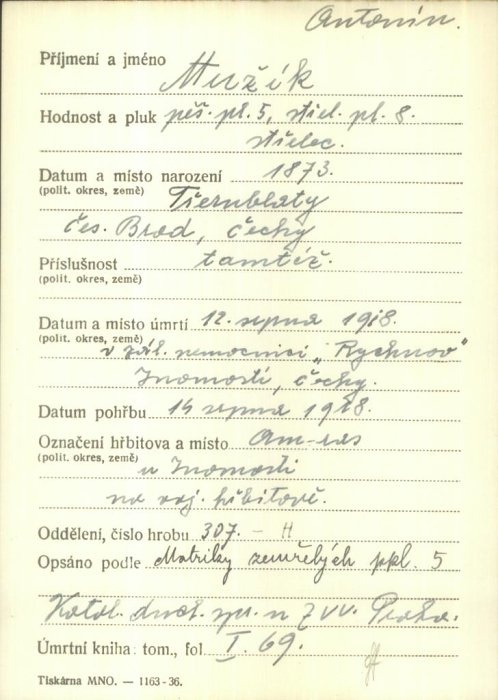 Antonín.
Příjmení a jméno Mužík
Hodnost a pluk pěš. pl. 5, střel. pl. 8.
střelec.
Datum a místo narození 1873.
(polit. okres, země) Tiernblaty
Čes. Brod, Čechy
Příslušnost tamtéž.
(polit. okres, země)
Datum a místo úmrtí 12. srpna 1918.
(polit. okres, země) v zál. nemocnici „Rychnov"
Inomosti, Čechy.
Datum pohřbu 14 srpna 1918.
Označení hřbitova a místo Am-ras
(polit. okres, země) u Inomosti
na voj. hřbitově.
Oddělení, číslo hrobu 307. - H
Opsáno podle Matriky zemřelých ppl. 5
Katol. duch. spr. u ZVV. Praha.
Úmrtní kniha: tom., fol I. 69.
Tiskárna MNO. — 1163-36.